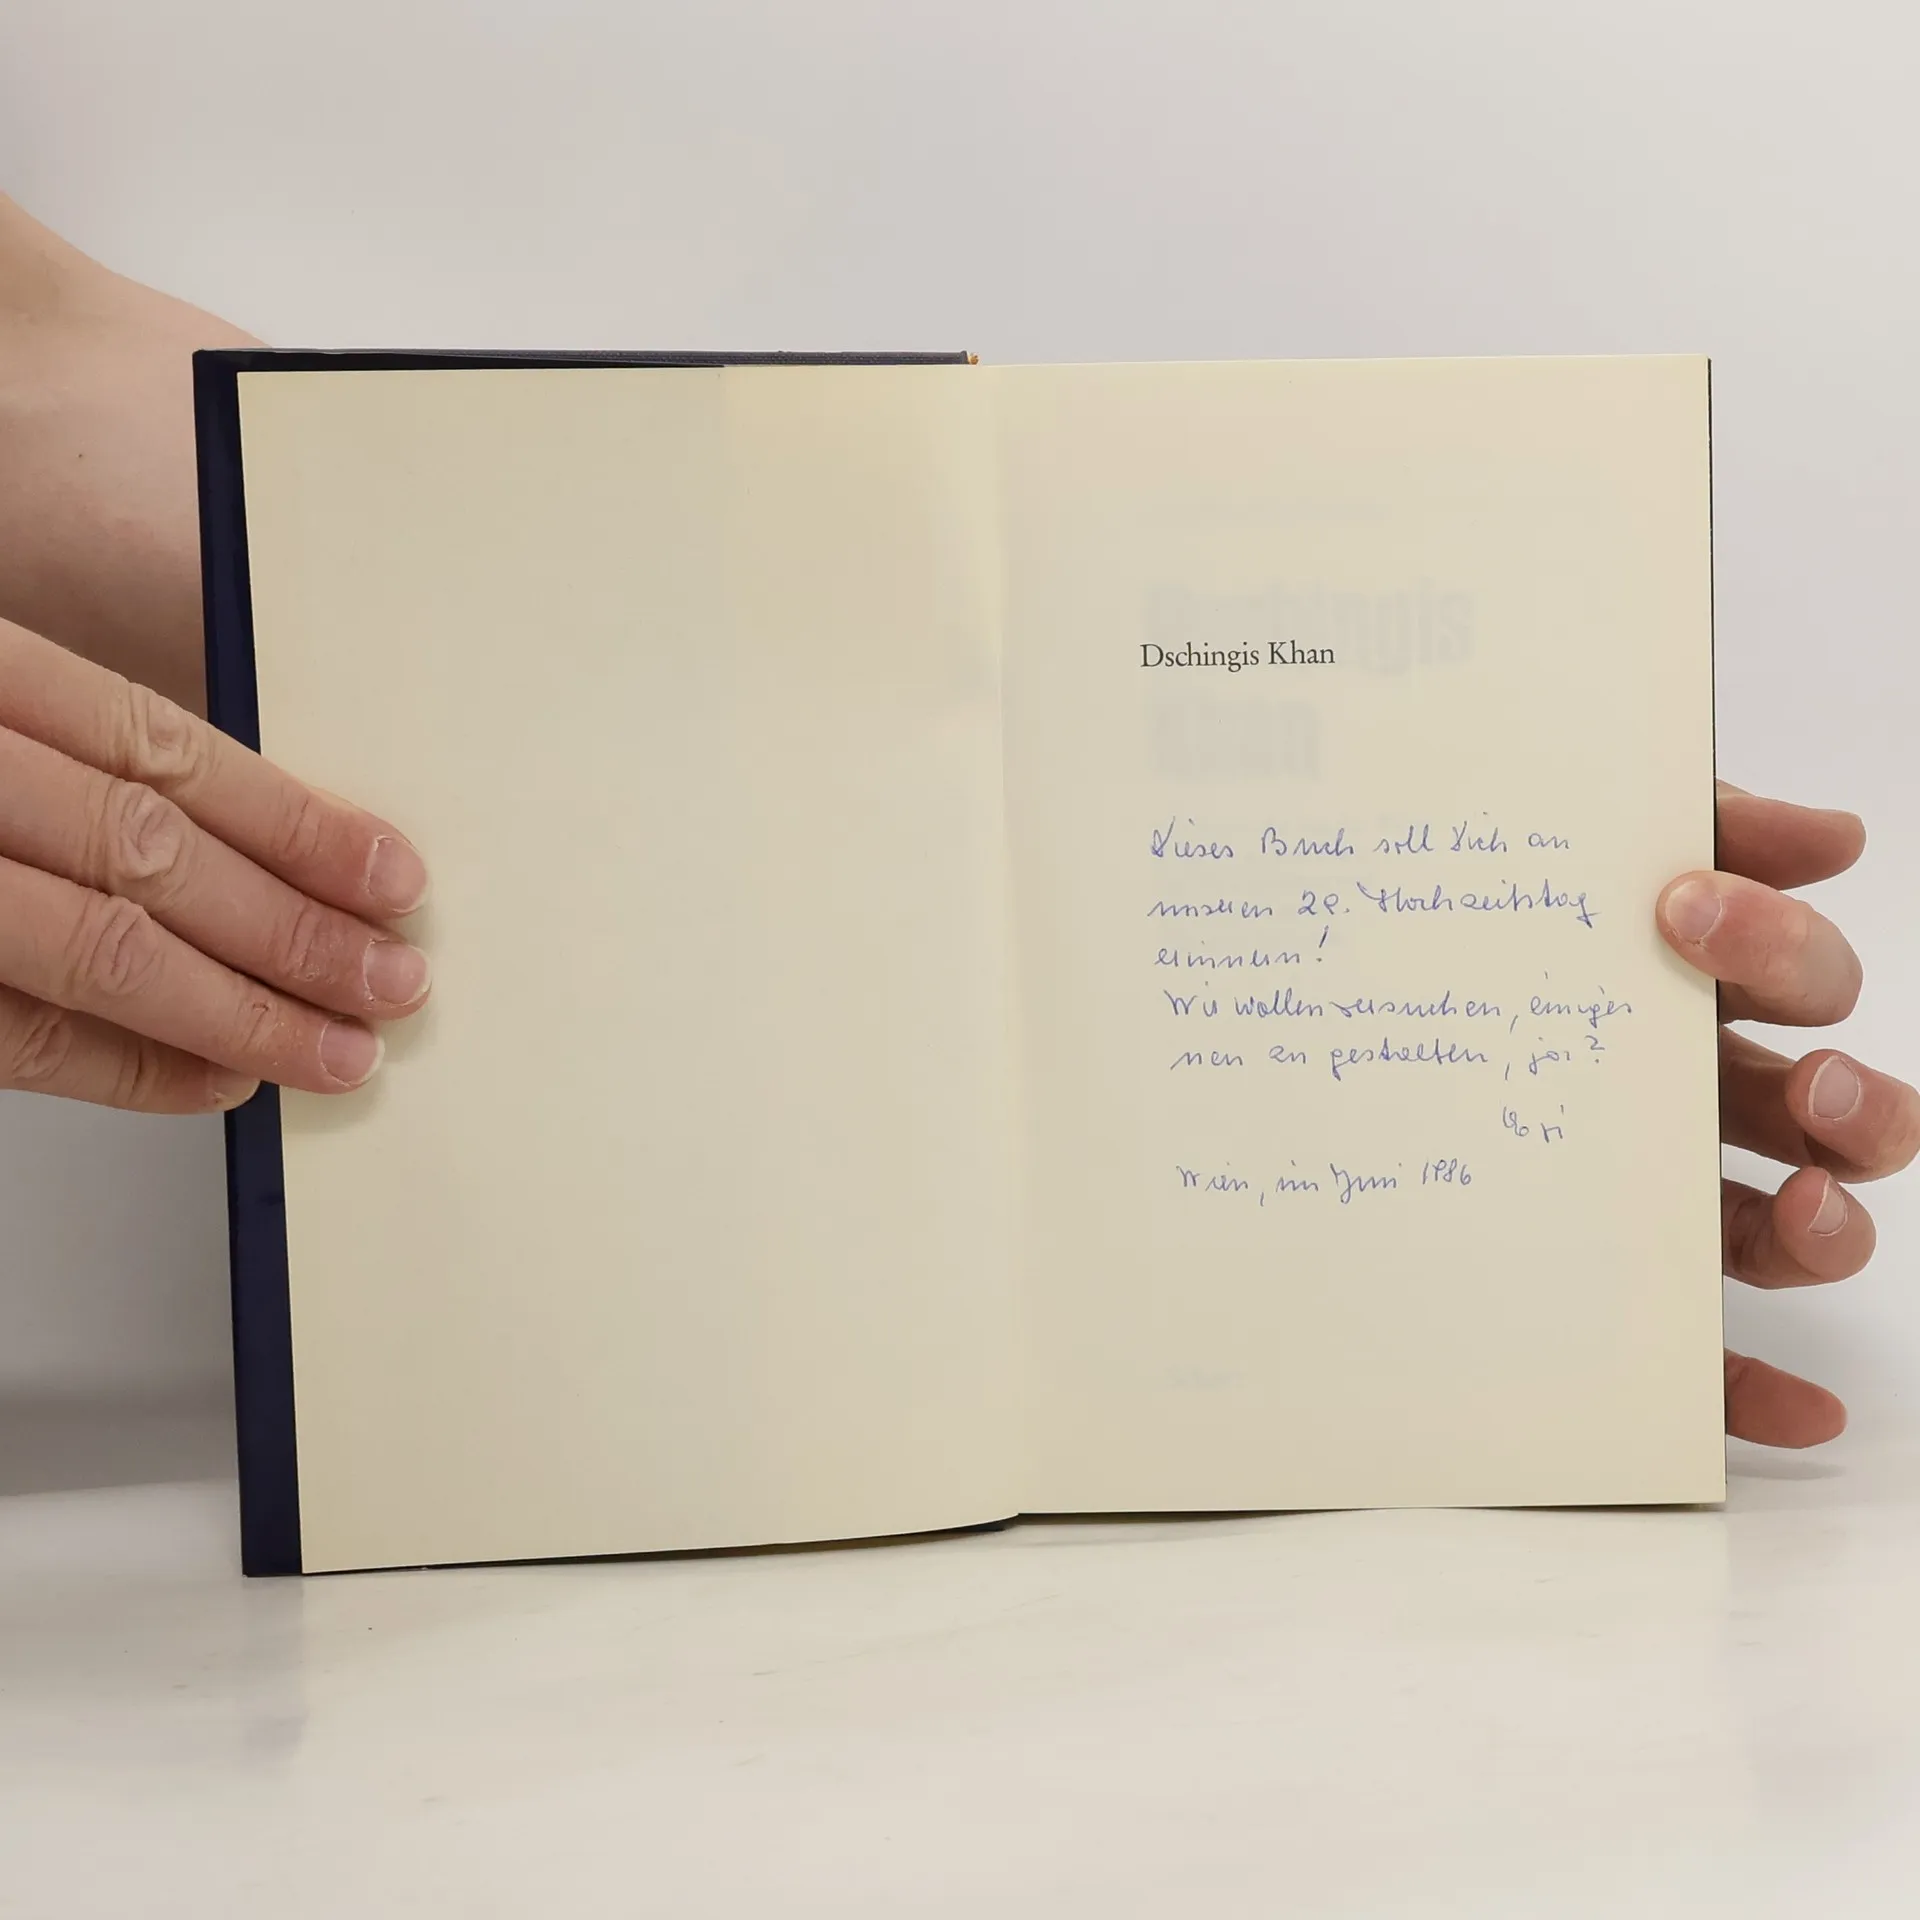 Dschingis Khan
Dieses Buch soll Dich an
unseren 29. Hochzeitstag
erinnern!
Wir wollen versuchen, einiges
neu zu gestalten, ja?
Wien, im Juni 1986